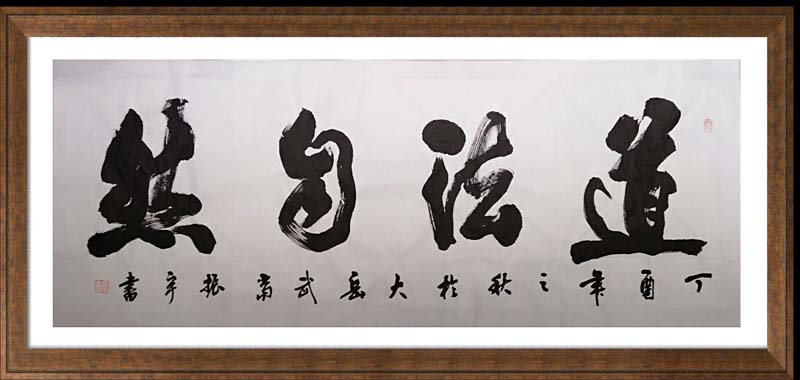 道法自然
丁酉年之秋於大岳武当振宇書